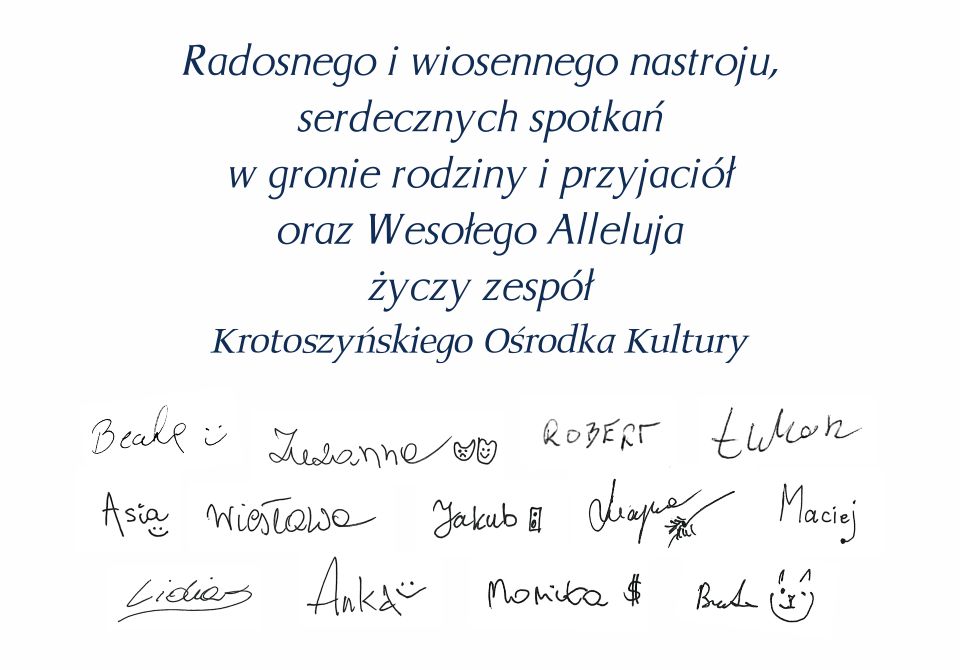 Radosnego i wiosennego nastroju,
serdecznych spotkań
w gronie rodziny i przyjaciół
oraz Wesołego Alleluja
życzy zespół
Krotoszyńskiego Ośrodka Kultury
Beata Zuzanna ROBERT Łukasz
Asia Wiesława Jakub Maciej
Lidia Anka Monika $ Beata